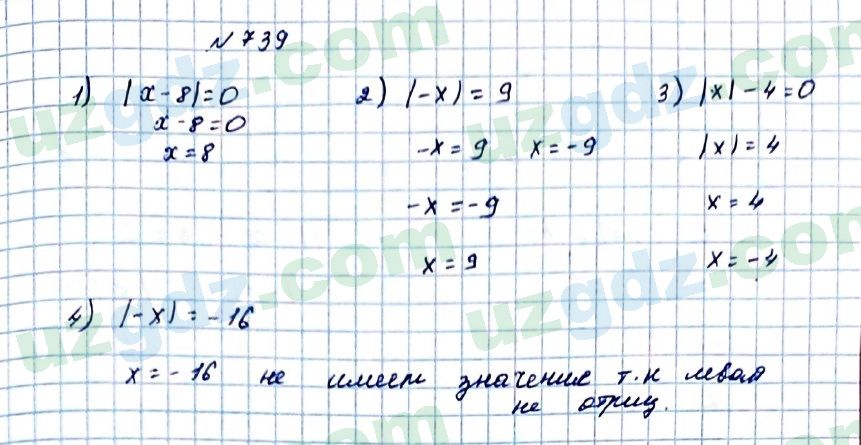 № 739
1) |x-8|=0
x-8=0
x=8
2) |-x|=9
-x=9 x=-9
-x=-9
x=9
3) |x|-4=0
|x|=4
x=4
x=-4
4) |-x|=-16
x=-16 не имеет значение т.к левая
не отриц.
uzgdz.com
uzgdz.com
uzgdz.com
uzgdz.com
uzgdz.com
uzgdz.com